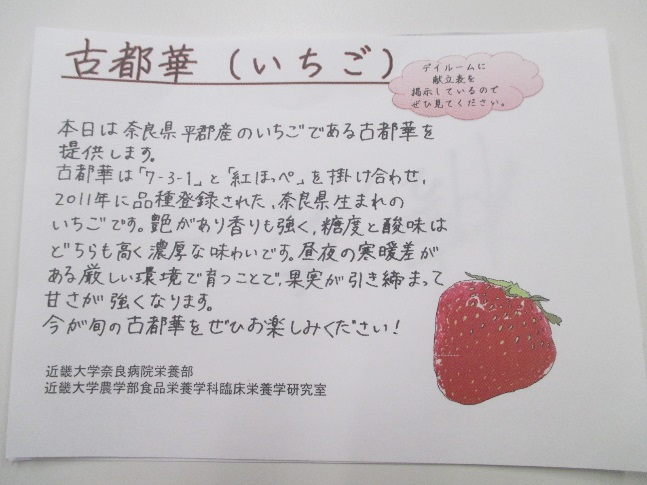 古都華（いちご）
デイルームに
献立表を
掲示しているので
ぜひ見てください。
本日は奈良県平郡産のいちごである古都華を
提供します。
古都華は「7-3-1」と「紅ほっぺ」を掛け合わせ、
2011年に品種登録された、奈良県生まれの
いちごです。艶があり香りも強く、糖度と酸味は
どちらも高く濃厚な味わいです。昼夜の寒暖差が
ある厳しい環境で育つことで、果実が引き締まって
甘さが強くなります。
今が旬の古都華をぜひお楽しみください！
近畿大学奈良病院栄養部
近畿大学農学部食品栄養学科臨床栄養学研究室